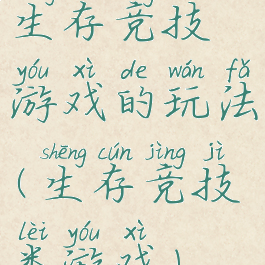 生存竞技
yóu xì de wán fǎ
游戏的玩法
shēng cún jìng jì
(生存竞技
lèi yóu xì
类游戏)